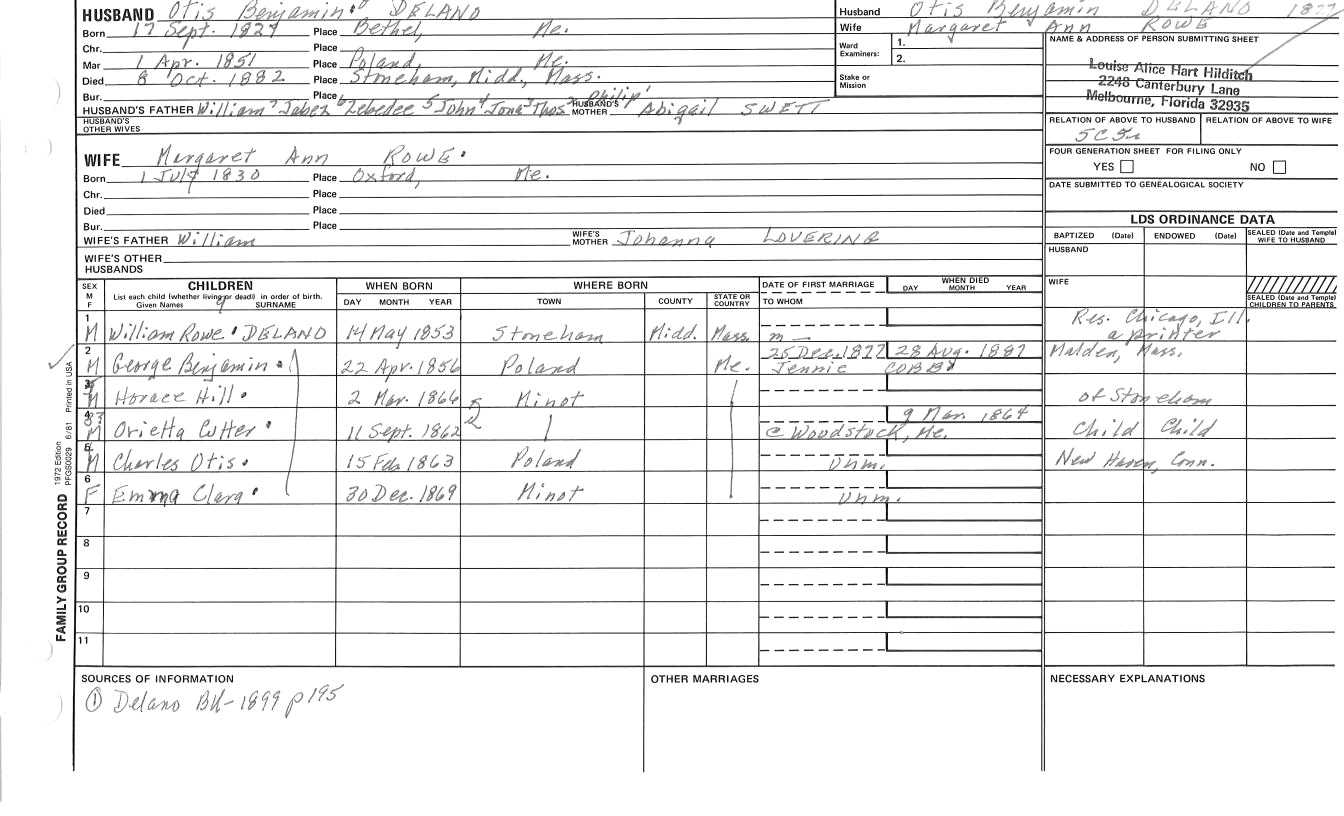 HUSBAND Otis Benjamin DELANO
Born 17 Sept. 1829 Place Bethel, Me.
Chr. Place
Mar 1 Apr. 1851 Place Poland, Me.
Died 8 Oct. 1882 Place Stoneham, Midd., Mass.
Bur. Place
HUSBAND'S FATHER William⁷ Jabez⁶ Zebedee⁵ John⁴ Jona³ Thos² Philip¹ HUSBAND'S MOTHER Abigail SWETT
HUSBAND'S OTHER WIVES
Husband Otis Benjamin DELANO
Wife Margaret Ann ROWE
Ward Examiners: 1.
2.
Stake or Mission
NAME & ADDRESS OF PERSON SUBMITTING SHEET
Louise Alice Hart Hilditch
2248 Canterbury Lane
Melbourne, Florida 32935
RELATION OF ABOVE TO HUSBAND RELATION OF ABOVE TO WIFE
FOUR GENERATION SHEET FOR FILING ONLY
YES NO
DATE SUBMITTED TO GENEALOGICAL SOCIETY
WIFE Margaret Ann ROWE
Born 1 July 1830 Place Oxford, Me.
Chr. Place
Died Place
Bur. Place
WIFE'S FATHER William WIFE'S MOTHER Johanna LOVERING
WIFE'S OTHER HUSBANDS
LDS ORDINANCE DATA
BAPTIZED (Date) ENDOWED (Date) SEALED (Date and Temple) WIFE TO HUSBAND
HUSBAND
WIFE
SEALED (Date and Temple) CHILDREN TO PARENTS
SEX M F CHILDREN WHEN BORN WHERE BORN DATE OF FIRST MARRIAGE WHEN DIED
List each child (whether living or dead) in order of birth.
Given Names SURNAME DAY MONTH YEAR TOWN COUNTY STATE OR COUNTRY TO WHOM DAY MONTH YEAR
1 M William Rowe DELANO 14 May 1853 Stoneham Midd. Mass. m — Res. Chicago, Ill. a printer
2 M George Benjamin 22 Apr. 1856 Poland Me. 25 Dec. 1877 28 Aug. 1887 Jennie COBB Malden, Mass.
3 M Horace Hill 2 Mar. 1866 Minot of Stoneham
4 M Orietta Cutter 11 Sept. 1862 9 Mar. 1864 @ Woodstock, Me. Child Child
5 M Charles Otis 15 Feb 1863 Poland Unm. New Haven, Conn.
6 F Emma Clara 30 Dec. 1869 Minot Unm.
7
8
9
10
11
FAMILY GROUP RECORD 1972 Edition PFGS0029 6/81 Printed in USA
SOURCES OF INFORMATION
① Delano BK-1899 p195
OTHER MARRIAGES
NECESSARY EXPLANATIONS